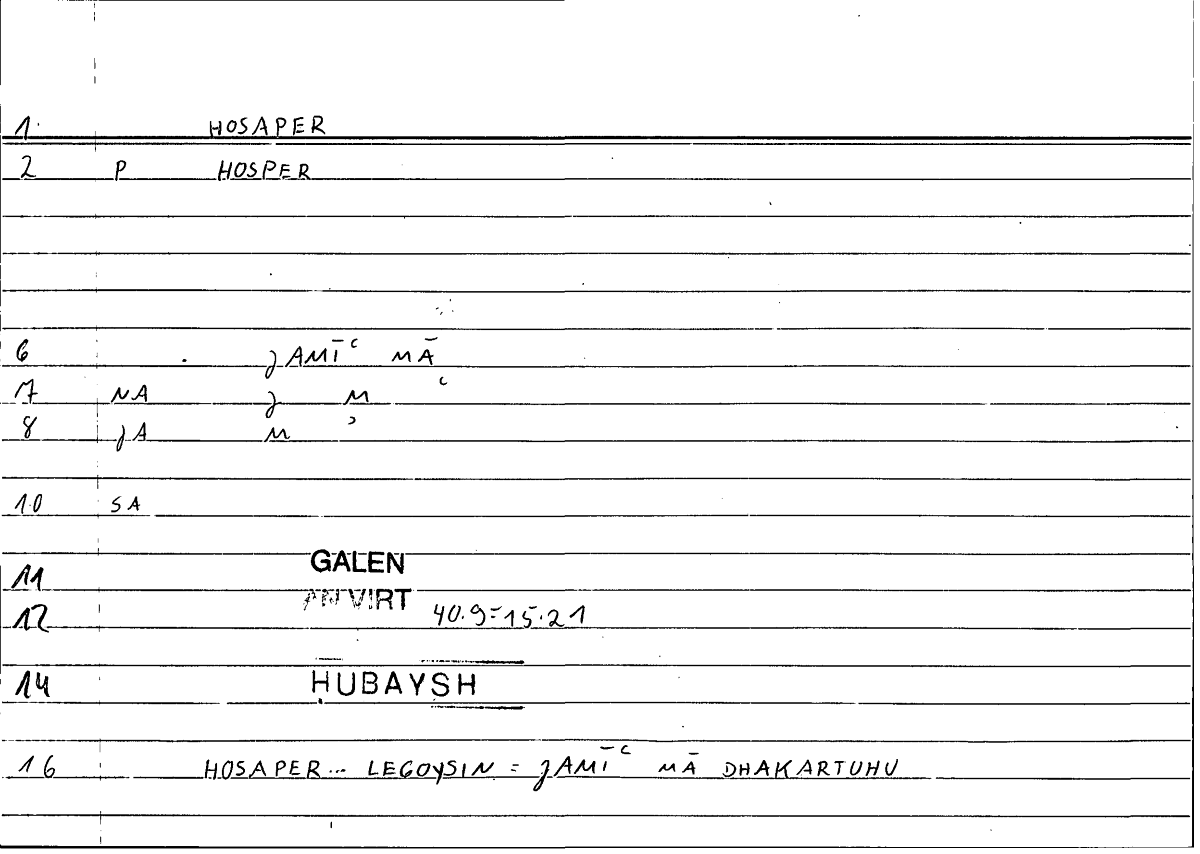 1. HOSAPER
2 P HOSPER
6 JAMĪʿ MĀ
7 NA J M ʿ
8 JA M ʾ
10 SA
11 GALEN
12 AN VIRT 40.9=15.21
14 ḤUBAYSH
16 HOSAPER... LEGOYSIN = JAMĪʿ MĀ DHAKARTUHU